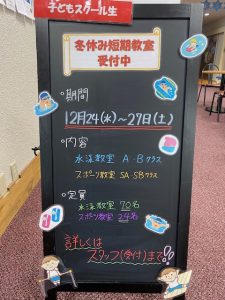 子どもスクール生
冬休み短期教室
受付中
◦期間
12月24(水)~27日(土)
◦内容
水泳教室 A・Bクラス
スポーツ教室 SA・SBクラス
◦定員
水泳教室 70名
スポーツ教室 24名
詳しくは
スタッフ(受付)まで!!